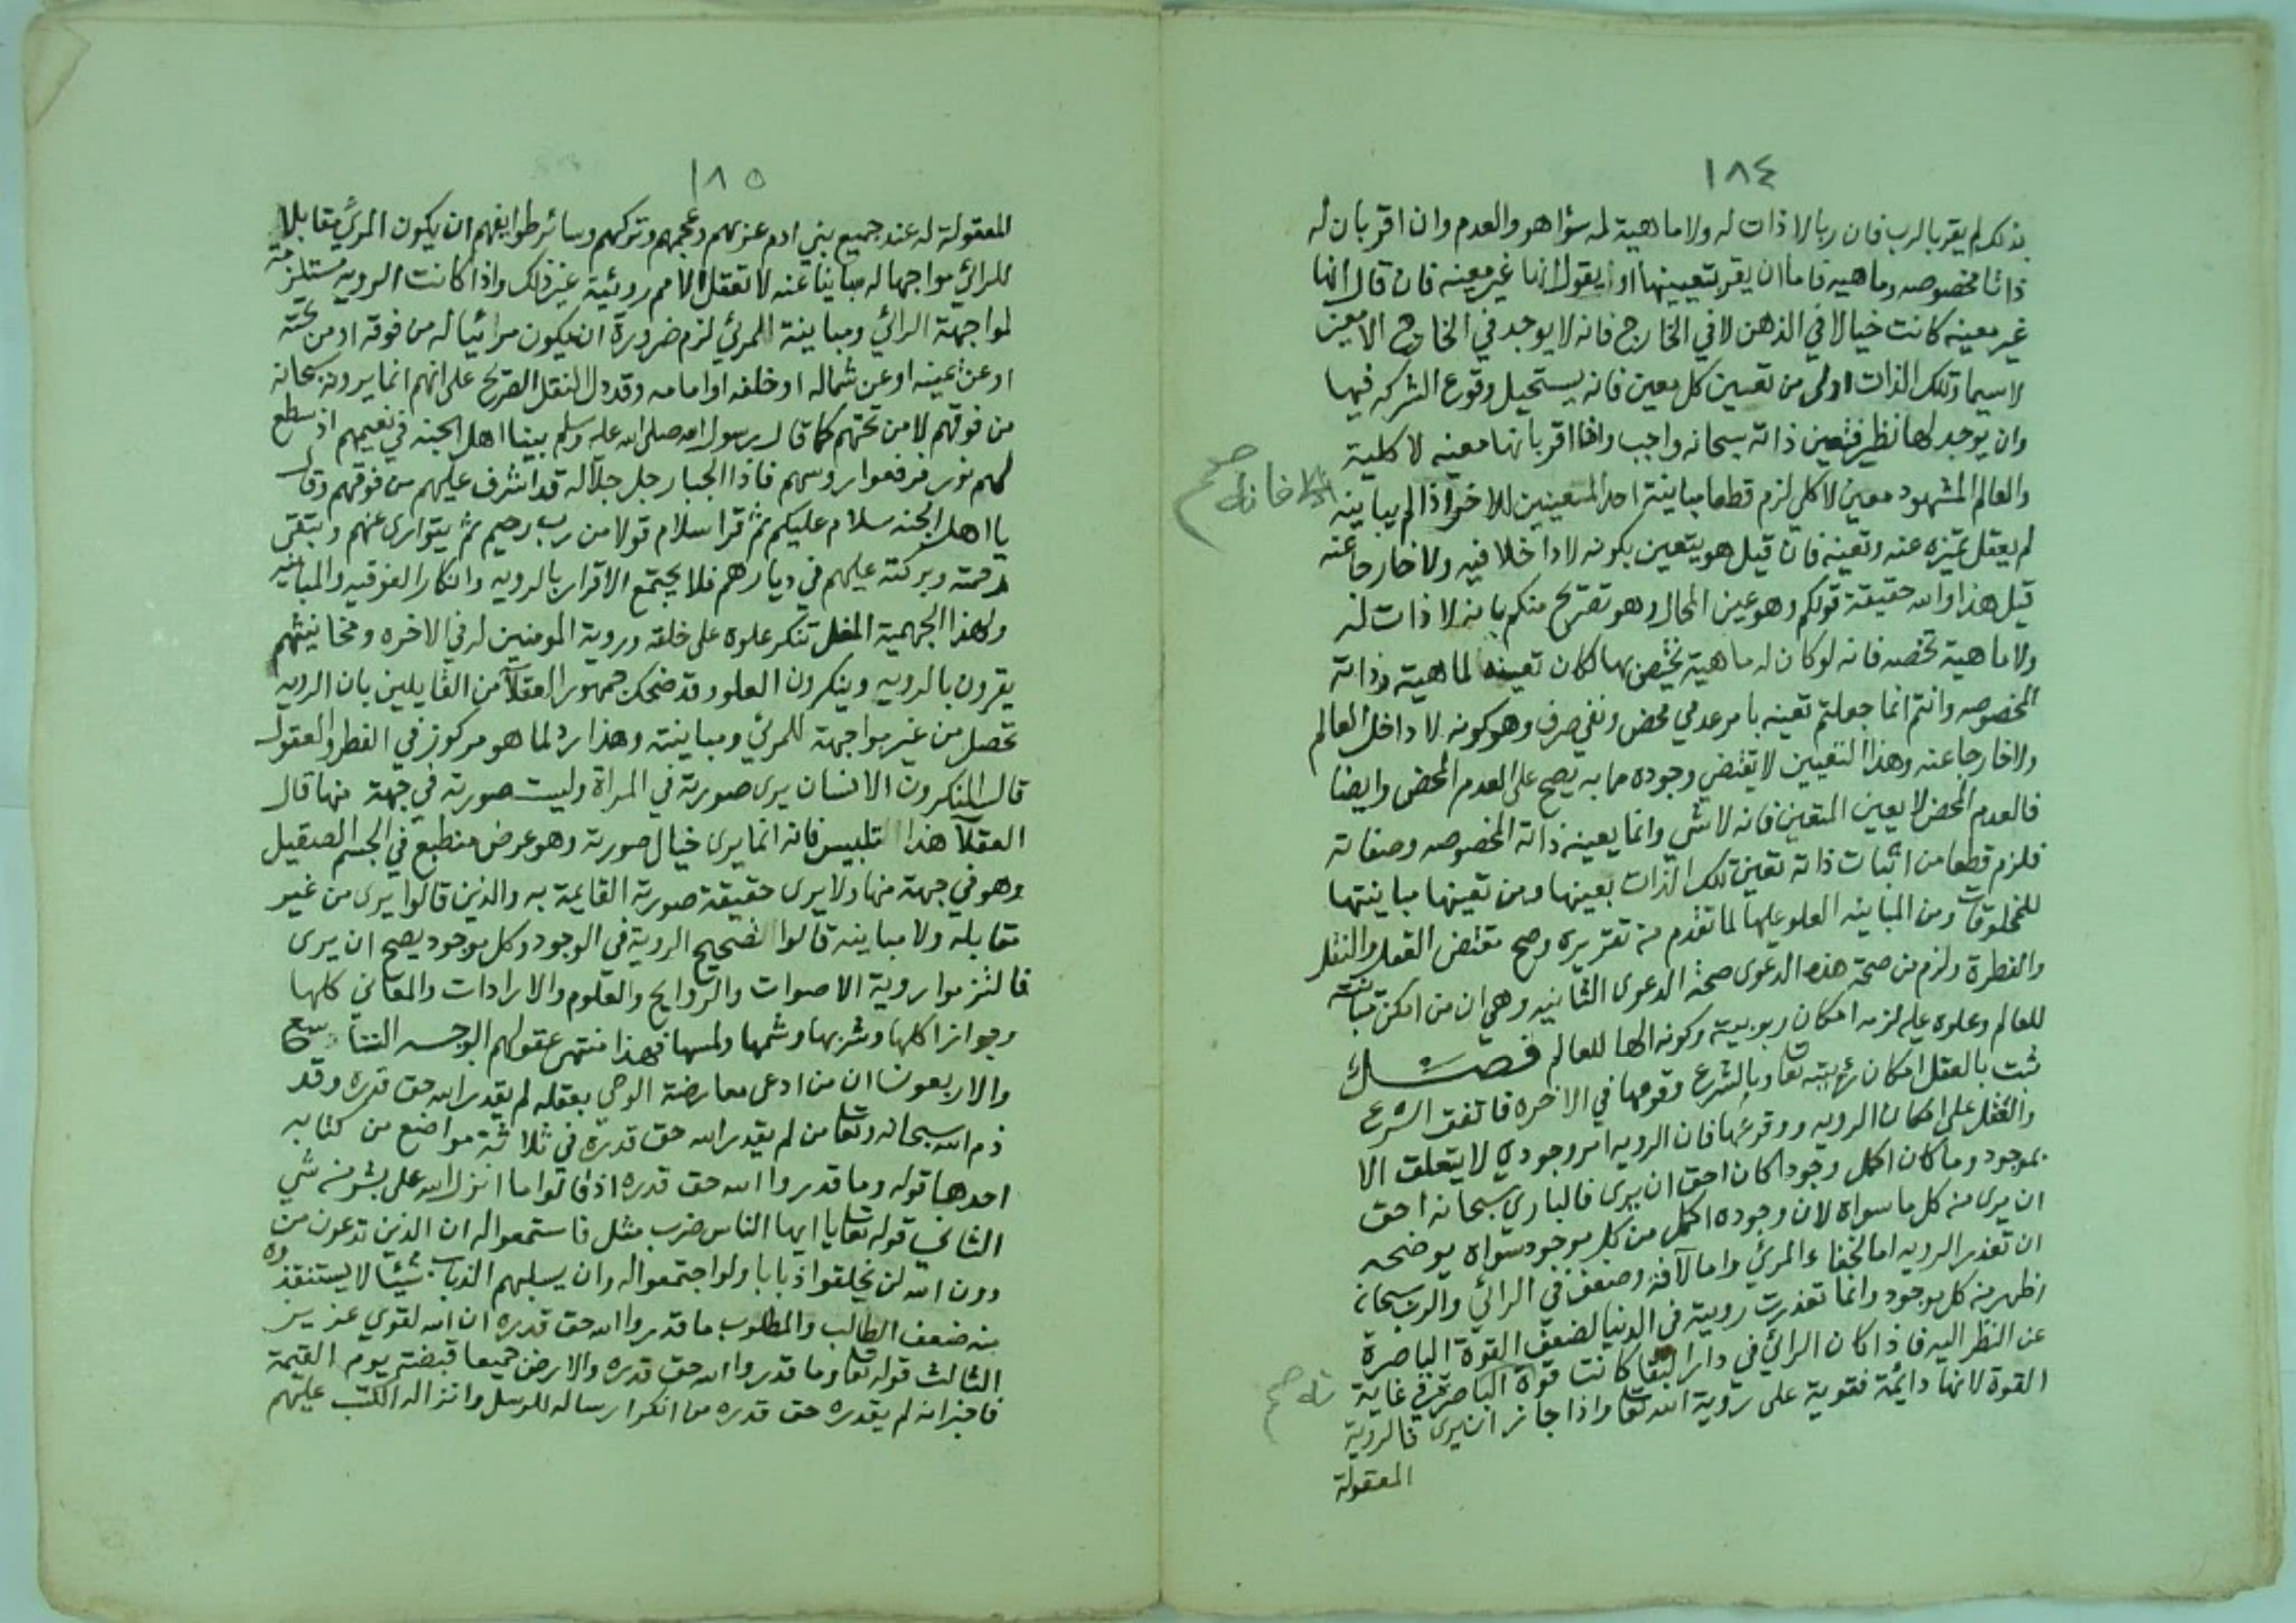 ١٨٤
بذلك لم يقر بالرب فان ربا لا ذات له ولا ماهية له سؤا هو والعدم وان اقر بان له
ذاتا مخصوصه وماهيه فاما ان يقر بتعيينها او يقول انها غير معينه فان قال انها
غير معينه كانت خيالا في الذهن لا في الخارج فانه لا يوجد في الخارج الا معين
لا سيما وتلك الذات اولى من تعيين كل معين فانه يستحيل وقوع الشركه فيها
وان يوجد لها نظير فتعين ذاته سبحانه واجب واذا اقر بانها معينه لا كلية
والعالم المشهود معين لا كلي لزم قطعا مباينة احد المتعينين للاخر اذا لم يباينه
فانه صح
لم يعقل تميزه عنه وتعينه فان قيل هو يتعين بكونه لا داخلا فيه ولا خارجا عنه
قيل هذا والله حقيقة قولكم وهو عين المحال وهو تصريح منكم بانه لا ذات له
ولا ماهية تخصه فانه لو كان له ماهية يختص بها لكان تعينه لماهيته وذاته
المخصوصه وانتم انما جعلتم تعينه بامر عدمي محض ونفي صرف وهو كونه لا داخل العالم
ولا خارجا عنه وهذا التعيين لا يقتضي وجوده مما به يصح على العدم المحض وايضا
فالعدم المحض لا يعين المتعين فانه لا شي وانما يعينه ذاته المخصوصه وصفاته
فلزم قطعا من اثبات ذاته تعين تلك الذات بعينها ومن تعينها مباينتها
للمخلوقات ومن المباينه العلو عليها لما تقدم من تقريره وصح مقتضى العقل والنقل
والفطرة ولزم من صحة هذه الدعوى صحة الدعوى الثانيه وهي ان من امكن مباينته
للعالم وعلوه عليه لزمه امكان ربوبيته وكونه الها للعالم فصــل
ثبت بالعقل امكان رؤيته تعا وبالشرع وقوعها في الاخره فاتفق الشرع
والعقل على امكان الرويه ووقوعها فان الرويه امر وجودي لا يتعلق الا
بموجود وما كان اكمل وجودا كان احق ان يرى فالباري سبحانه احق
ان يرى من كل ما سواه لان وجوده اكمل من كل موجود سواه يوضحه
ان تعذر الرويه اما لخفاء المرئي واما لآفة وضعف في الرائي والرب سبحانه
اظهر من كل موجود وانما تعذرت رويته في الدنيا لضعف القوة الباصرة
عن النظر اليه فاذا كان الرائي في دار البقا كانت قوة الباصرة في غاية
القوة لانها دائمة فقوية على رؤية الله تعا واذا جاز ان يرى فالروية
المعقولة
١٨٥
المعقولة له عند جميع بني ادم عربهم وعجمهم وتركهم وسائر طوايفهم ان يكون المرئي مقابلا
للرائي مواجها له مباينا عنه لا تعقل الامم روئية غير ذلك واذا كانت الرويه مستلزمة
لمواجهة الرائي ومباينة المرئي لزم ضرورة ان يكون مرائيا له من فوقه او من تحته
او عن يمينه او عن شماله او خلفه او امامه وقد دل النقل الصريح على انهم انما يرونه سبحانه
من فوقهم لا من تحتهم كما قال رسول الله صلى الله عليه وسلم بينا اهل الجنه في نعيمهم اذ سطع
لهم نور فرفعوا روسهم فاذا الجبار جل جلاله قد اشرف عليهم من فوقهم وقال
يا اهل الجنه سلام عليكم ثم قرا سلام قولا من رب رحيم ثم يتوارى عنهم وتبقى
رحمته وبركته عليهم في ديارهم فلا يجتمع الاقرار بالرويه وانكار الفوقيه والمباينه
ولهذا الجهمية المغل تنكر علوه على خلقه وروية المومنين له في الاخره ومخانيثهم
يقرون بالرويه وينكرون العلو وقد ضحك جمهور العقلآ من القايلين بان الرويه
تحصل من غير مواجهة للمرئي ومباينته وهذا رد لما هو مركوز في الفطر والعقول
قال المنكرون الانسان يرى صورته في المراة وليست صورته في جهة منها قال
العقلآ هذا التلبيس فانه انما يرى خيال صورته وهو عرض منطبع في الجسم الصقيل
وهو في جهة منها ولا يرى حقيقة صورته القايمة به والذين قالوا يرى من غير
مقابله ولا مباينه قالوا الصحيح الروية في الوجود وكل موجود يصح ان يرى
فالتزموا روية الاصوات والروايح والعلوم والارادات والمعاني كلها
وجواز اكلها وشربها وشمها ولمسها فهذا منتهى عقولهم الوجـه التتاسع
والاربعون ان من ادعى معارضة الوحي بعقله لم يقدر الله حق قدره وقد
ذم الله سبحانه وتعا من لم يقدر الله حق قدره في ثلاثة مواضع من كتابه
احدها قوله وما قدروا الله حق قدره اذ قالوا ما انزل الله على بشر من شي
الثاني قوله تعا يا ايها الناس ضرب مثل فاستمعوا له ان الذين تدعون من
دون الله لن يخلقوا ذبابا ولو اجتمعوا له وان يسلبهم الذباب شيئا لا يستنقذوه
منه ضعف الطالب والمطلوب ما قدروا الله حق قدره ان الله لقوي عزيز
الثالث قوله تعا وما قدروا الله حق قدره والارض جميعا قبضته يوم القيمة
فاخبر انه لم يقدره حق قدره من انكر ارساله للرسل وانزاله الكتب عليهم